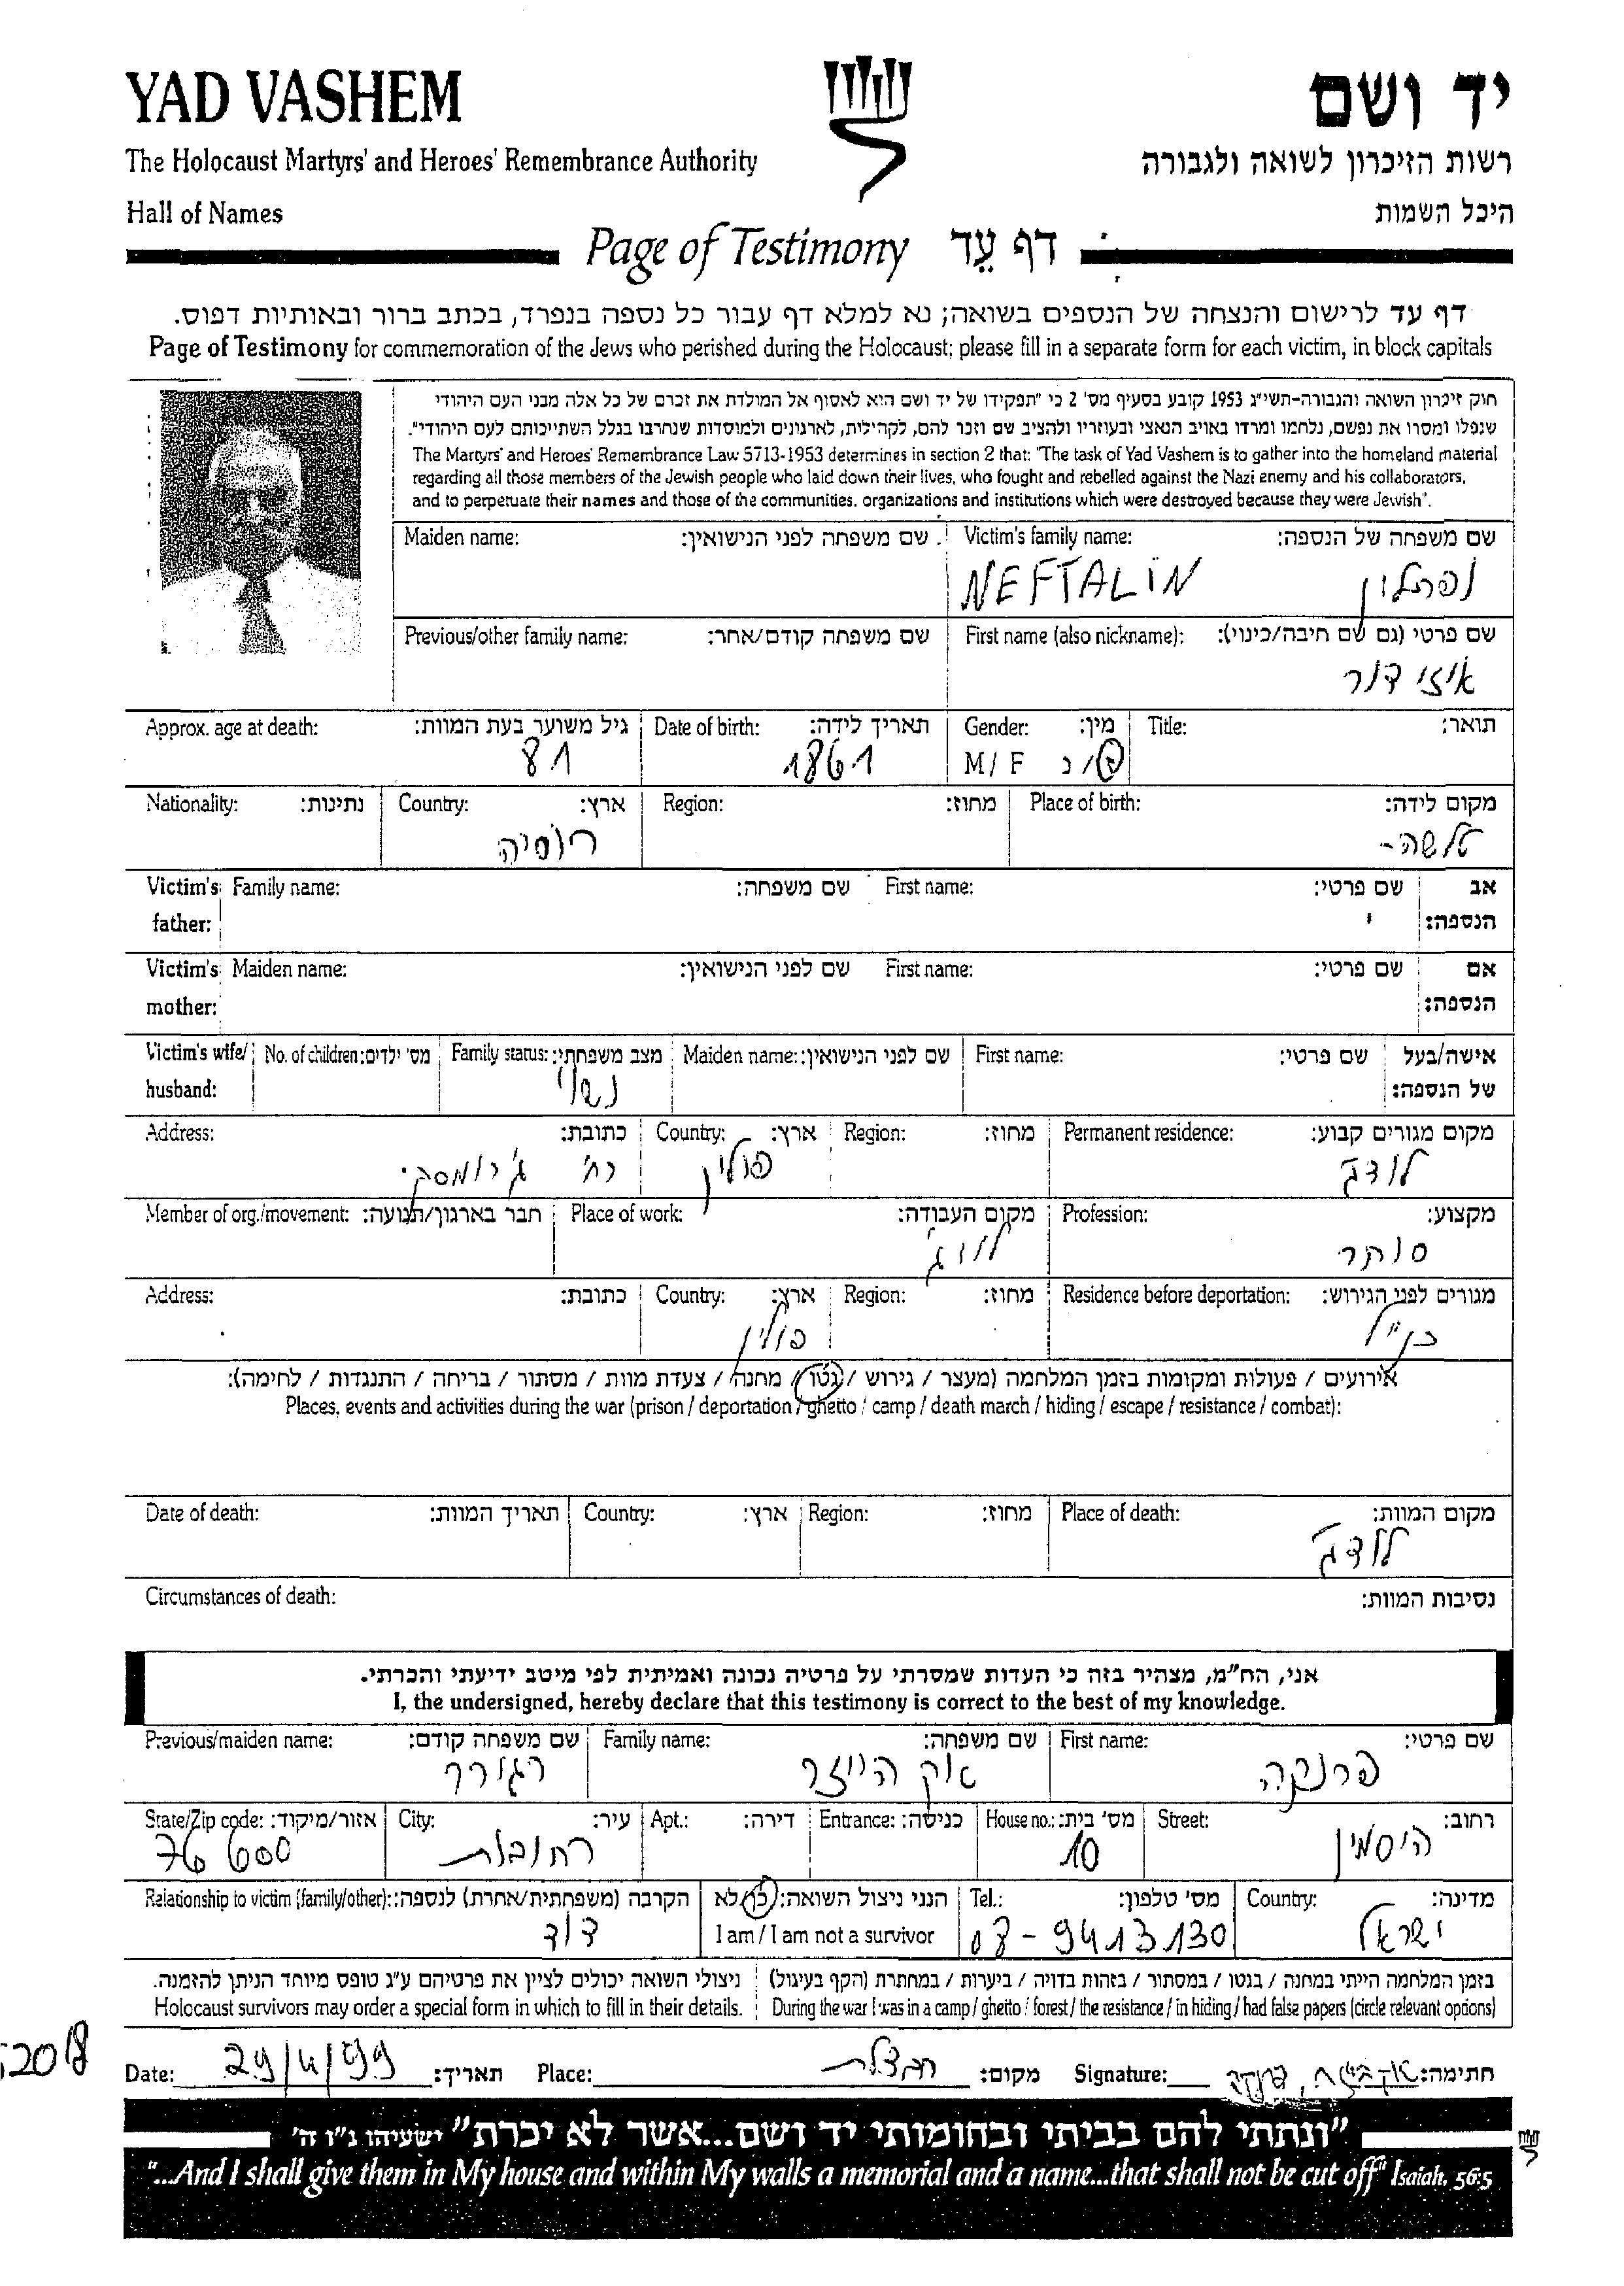 YAD VASHEM
יד ושם
The Holocaust Martyrs' and Heroes' Remembrance Authority
רשות הזיכרון לשואה ולגבורה
Hall of Names
היכל השמות
Page of Testimony דף עֵד
דף עד לרישום והנצחה של הנספים בשואה; נא למלא דף עבור כל נספה בנפרד, בכתב ברור ובאותיות דפוס.
Page of Testimony for commemoration of the Jews who perished during the Holocaust; please fill in a separate form for each victim, in block capitals
חוק זיכרון השואה והגבורה-תשי"ג 1953 קובע בסעיף מס' 2 כי "תפקידו של יד ושם הוא לאסוף אל המולדת את זכרם של כל אלה מבני העם היהודי
שנפלו ומסרו את נפשם, נלחמו ומרדו באויב הנאצי ובעוזריו ולהציב שם וזכר להם, לקהילות, לארגונים ולמוסדות שנחרבו בגלל השתייכותם לעם היהודי".
The Martyrs' and Heroes' Remembrance Law 5713-1953 determines in section 2 that: "The task of Yad Vashem is to gather into the homeland material
regarding all those members of the Jewish people who laid down their lives, who fought and rebelled against the Nazi enemy and his collaborators,
and to perpetuate their names and those of the communities, organizations and institutions which were destroyed because they were Jewish".
Maiden name: שם משפחה לפני הנישואין: Victim's family name: שם משפחה של הנספה:
NEFTALIN נפתלין
Previous/other family name: שם משפחה קודם/אחר: First name (also nickname): שם פרטי (גם שם חיבה/כינוי):
איזידור
Approx. age at death: גיל משוער בעת המוות: Date of birth: תאריך לידה: Gender: מין: Title: תואר:
81 1861 M / F ז/נ
Nationality: נתינות: Country: ארץ: Region: מחוז: Place of birth: מקום לידה:
רוסיה
Victim's father: Family name: שם משפחה: First name: שם פרטי: אב הנספה:
Victim's mother: Maiden name: שם לפני הנישואין: First name: שם פרטי: אם הנספה:
Victim's wife/ husband: No. of children: מס' ילדים: Family status: מצב משפחתי: Maiden name: שם לפני הנישואין: First name: שם פרטי: אישה/בעל של הנספה:
נשוי
Address: כתובת: Country: ארץ: Region: מחוז: Permanent residence: מקום מגורים קבוע:
רח' ג'רומסקי פולין לודג'
Member of org./movement: חבר בארגון/תנועה: Place of work: מקום העבודה: Profession: מקצוע:
לודג' סוחר
Address: כתובת: Country: ארץ: Region: מחוז: Residence before deportation: מגורים לפני הגירוש:
פולין כנ"ל
אירועים / פעולות ומקומות בזמן המלחמה (מעצר / גירוש / גטו / מחנה / צעדת מוות / מסתור / בריחה / התנגדות / לחימה):
Places, events and activities during the war (prison / deportation / ghetto / camp / death march / hiding / escape / resistance / combat):
Date of death: תאריך המוות: Country: ארץ: Region: מחוז: Place of death: מקום המוות:
לודג'
Circumstances of death: נסיבות המוות:
אני, הח"מ, מצהיר בזה כי העדות שמסרתי על פרטיה נכונה ואמיתית לפי מיטב ידיעתי והכרתי.
I, the undersigned, hereby declare that this testimony is correct to the best of my knowledge.
Previous/maiden name: שם משפחה קודם: Family name: שם משפחה: First name: שם פרטי:
הייזר פרנקה
State/Zip code: אזור/מיקוד: City: עיר: Apt.: דירה: Entrance: כניסה: House no.: מס' בית: Street: רחוב:
76 600 רחובות 10 היסמין
Relationship to victim (family/other): הקרבה (משפחתית/אחרת) לנספה: הנני ניצול השואה: כן/לא Tel.: מס' טלפון: Country: מדינה:
דוד I am / I am not a survivor 08-9413130 ישראל
בזמן המלחמה הייתי במחנה / בגטו / במסתור / בזהות בדויה / ביערות / במחתרת (הקף בעיגול) ניצולי השואה יכולים לציין את פרטיהם ע"ג טופס מיוחד הניתן להזמנה.
Holocaust survivors may order a special form in which to fill in their details. During the war I was in a camp / ghetto / forest / the resistance / in hiding / had false papers (circle relevant options)
Date: 29/4/99 תאריך: Place: מקום: Signature: חתימה:
"ונתתי להם בביתי ובחומותי יד ושם...אשר לא יכרת" ישעיהו נ"ו ה'
"...And I shall give them in My house and within My walls a memorial and a name...that shall not be cut off" Isaiah, 56:5